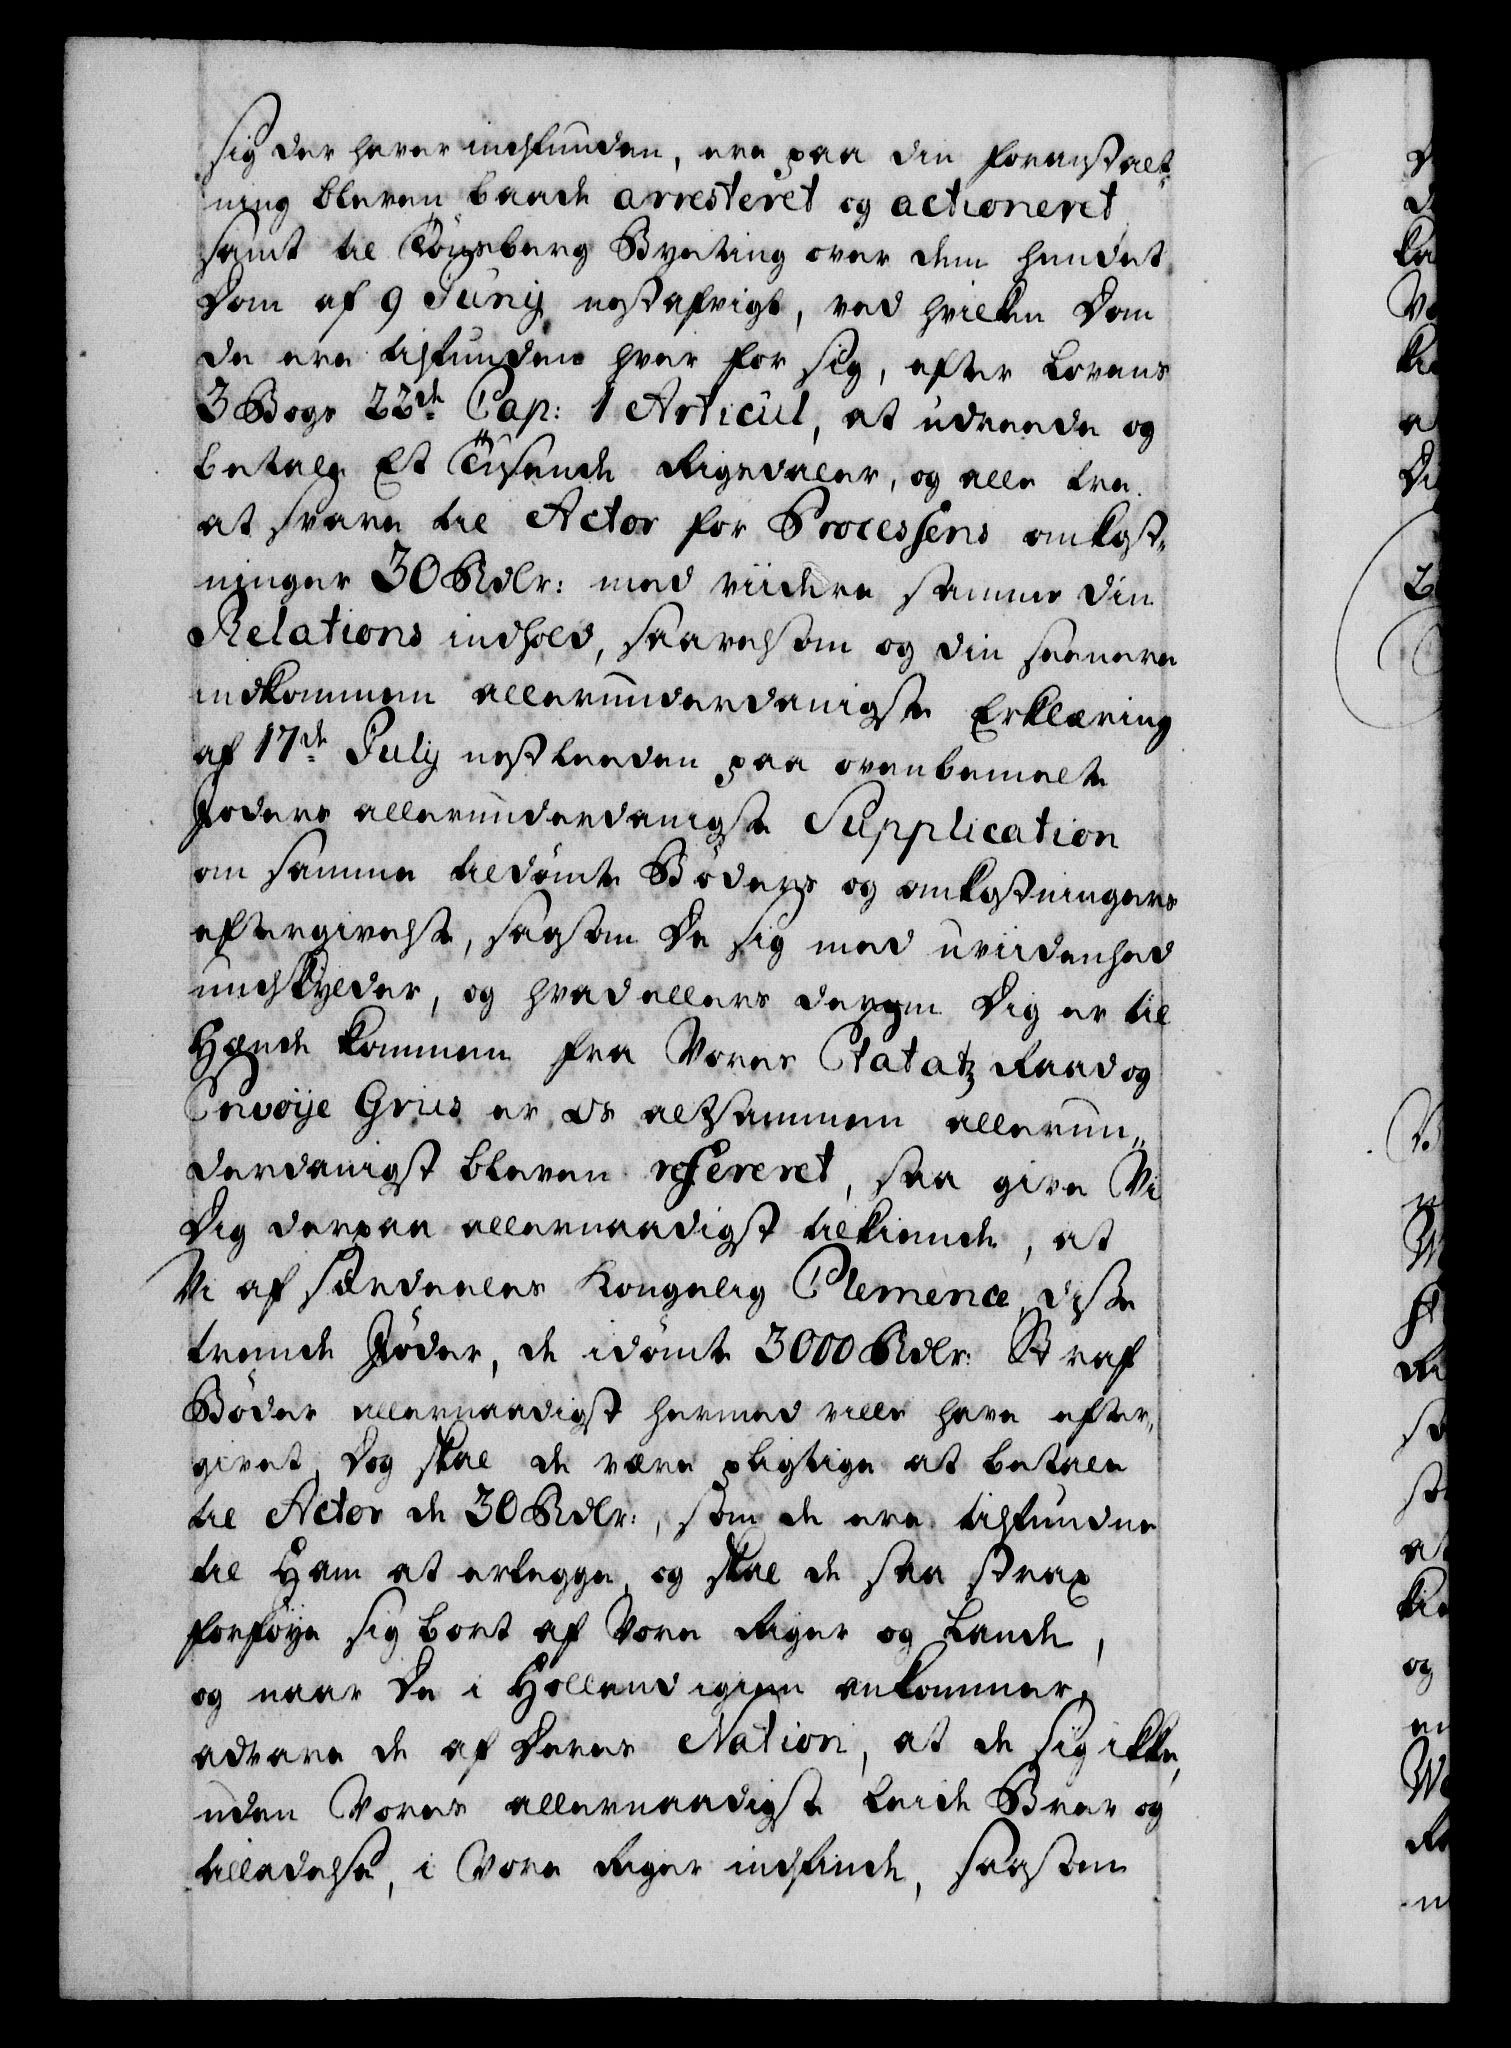 sig der haver indfunden, ere paa din foranstalt-
ning bleven baade arresteret og actioneret
samt til Tönsberg Byeting over dem hendet
Dom af 9 Junij nestafvigt, ved hvilken Dom
de ere tilfunden hver for sig, efter Lovens
3 Bogs 22de Cap: 1 Articul, at udreede og
betale Et Tusende Rigsdaler, og alle tre
at svare til Actor for Processens omkost-
ninger 30 Rdlr: med viidere samme din
Relations indhold, saavelsom og din seenere
indkommen allerunderdanigste Erklæring
af 17de Julij nestleeden paa ovenbemelte
Jøders allerunderdanigste Supplication
om samme tildömte Böders og omkostningers
eftergivelse, saasom De sig med uviidenhed
undskylder, og hvad ellers derom Dig er til
Hænde kommen fra Vores Etatatz Raad og
Envoije Griis er os altsammen allerun-
derdanigst bleven refereret, saa give Vi
Dig derpaa allernaadigst tilkiende, at
Vi af særdeeles Kongelig Clemence, disse
fremde Jøder, de idömte 3000 Rdlr: Straf
Böder allernaadigst hermed ville have efter-
givet, Dog skal de være pligtige at betale
til Actor de 30 Rdlr:, som de ere tilfundne
til Ham at erlegge, og skal de saa strax
forföye sig bort af Vore Riger og Lande,
og naar De i Holland igien ankommer,
advare de af Deres Nation, at de sig ikke,
uden Vores allernaadigste Leide Brev og
tilladelse, i Vore Riger indfinde, saasom